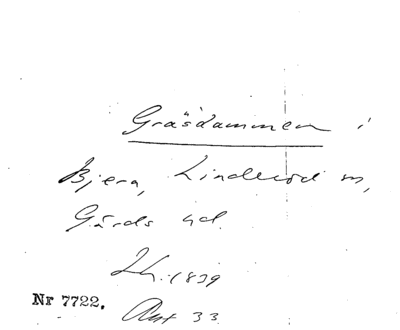 Gräsdammen i
Bjera, Linderöd sn,
Gärds hd.
Lh. 1839
Nr 7722.
33